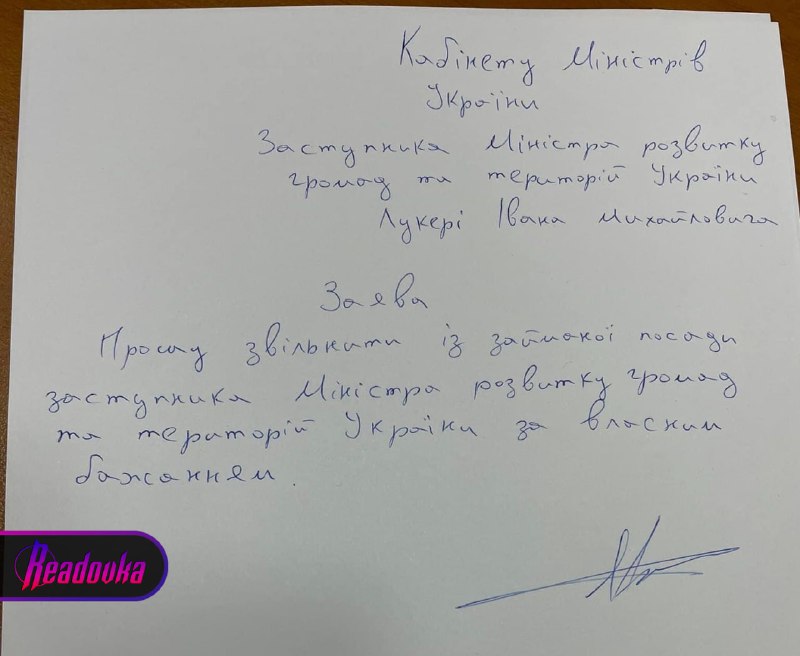 Кабінету Міністрів
України
Заступника Міністра розвитку
громад та територій України
Лукері Івана Михайловича
Заява
Прошу звільнити із займаної посади
заступника Міністра розвитку громад
та територій України за власним
бажанням.
Readovka